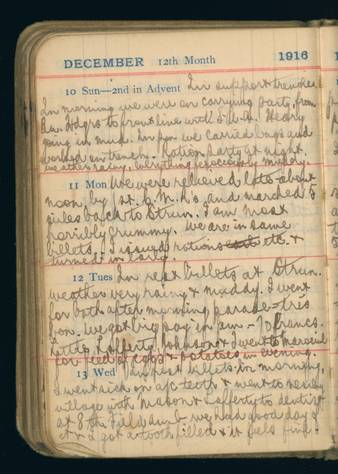 DECEMBER 12th Month 1916
10 Sun—2nd in Advent In support trenches.
In morning we were on carrying party, from
Hdqrs to front line with Heavy
going in mud. In p.m. we carried bags and
worked on trench. Ration party at night.
weather rainy. Everything muddy.
11 Mon We were relieved late about
noon by 1st. C.M.R's and marched 5
miles back to I am most
horribly crummy. We are in same
billets. I issued rations etc. &
turned in early.
12 Tues In rest billets at
weather very rainy & muddy. I went
for bath after morning parade - très
bon. We got big pay in p.m. - 70 francs.
Lafferty, Johnson & I went to
for feed of eggs & potatoes in evening.
13 Wed In rest billets. In morning,
I went sick on a/c teeth & went to
village with Mason & Lafferty to dentist
at 8th Field Amb. we had good day of
it & I got a tooth filled & it feels fine.